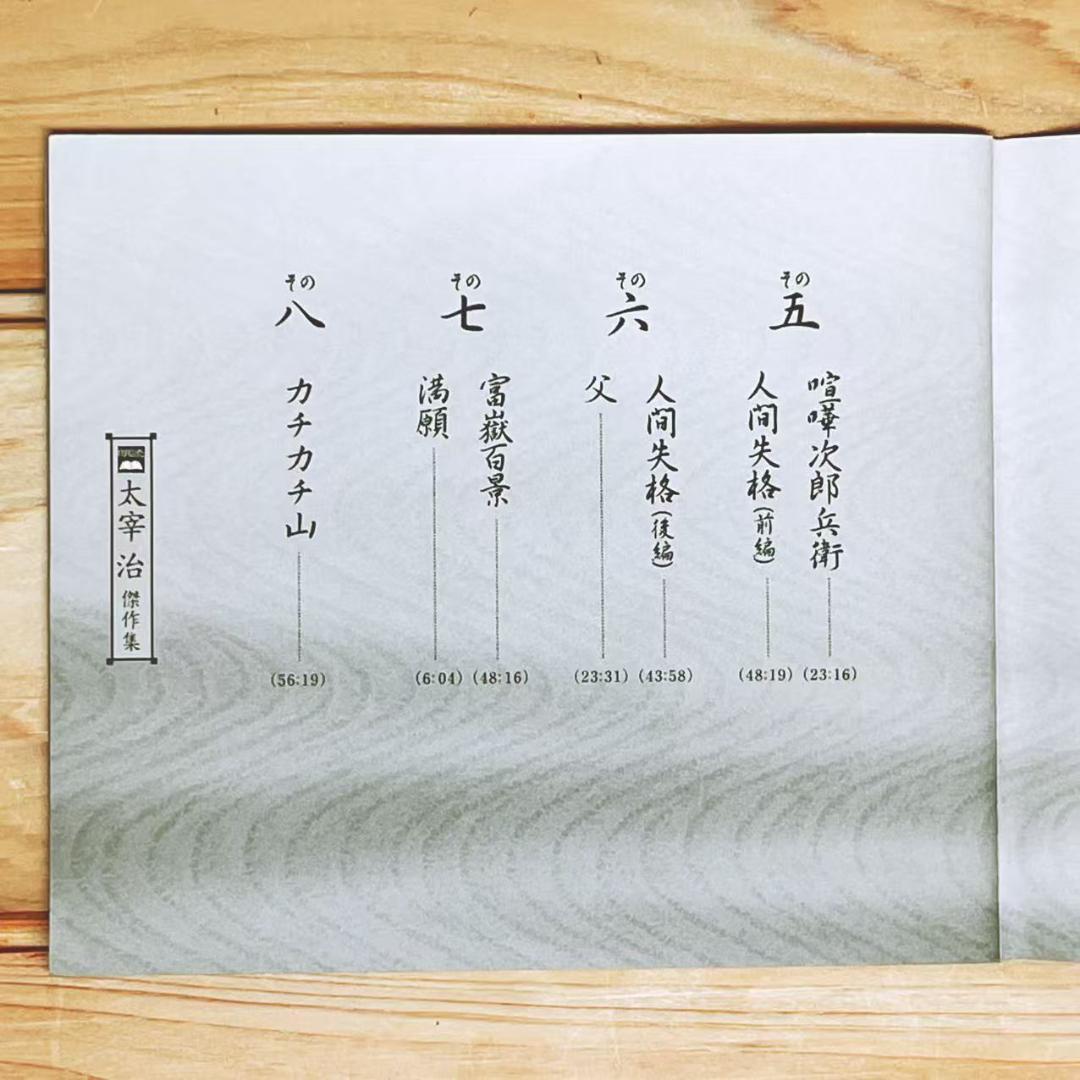 その
五
喧嘩次郎兵衛
(23:16)
人間失格(前編)
(48:19)
その
六
人間失格(後編)
(43:58)
父
(23:31)
その
七
富嶽百景
(48:16)
満願
(6:04)
その
八
カチカチ山
(56:19)
太宰治傑作集